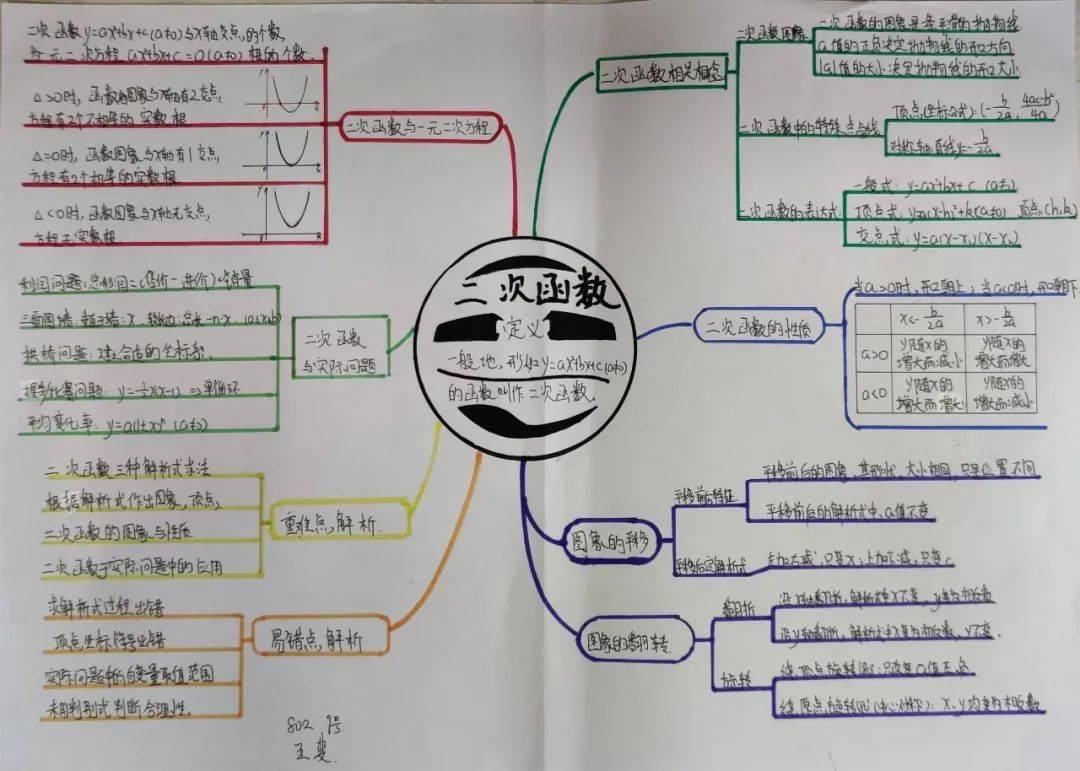 二次函数y=ax²+bx+c(a≠0)与x轴交点的个数,
与一元二次方程ax²+bx+c=0(a≠0)根的个数.
△>0时,函数图象与x轴有2交点,
方程有2个不相等的实数根
△=0时,函数图象与x轴有1交点,
方程有2个相等的实数根
△<0时,函数图象与x轴无交点,
方程无实数根
二次函数与一元二次方程
二次函数相关概念
二次函数图象
二次函数的图象是一条平滑的抛物线
a值的正负决定抛物线的开口方向
|a|值的大小决定抛物线的开口大小
二次函数中的特殊点与线
顶点(坐标公式):(-b/2a, 4ac-b²/4a)
对称轴:直线x=-b/2a
二次函数的表达式
一般式:y=ax²+bx+c (a≠0)
顶点式:y=a(x-h)²+k(a≠0) 顶点(h,k)
交点式:y=a(x-x₁)(x-x₂)
二次函数
定义
一般地,形如y=ax²+bx+c(a≠0)
的函数叫作二次函数.
利润问题:总利润=(售价-进价)×销量
三面围墙:
拱桥问题:建立合适的坐标系,
握手比赛问题:y=½x(x-1) ⇒单循环
平均变化率:y=a(1±x)² (a≠0)
二次函数
与实际问题
二次函数的性质
当a>0时,开口朝上;当a<0时,开口朝下.
x<-b/2a x>-b/2a
a>0 y随x的增大而减小 y随x的增大而增大
a<0 y随x的增大而增大 y随x的增大而减小
二次函数三种解析式求法
根据解析式作出图象,顶点,
二次函数的图象与性质
二次函数于实际问题中的应用
重难点,解析.
求解析式过程出错
顶点坐标符号出错
实际问题中的自变量取值范围
未用判别式判断合理性.
易错点,解析
图象的平移
平移前后特征
平移前后的图象,其形状、大小相同,只是位置不同
平移前后的解析式中,a值不变
平移后定解析式
左加右减,只变x,上加下减,只变c
图象的翻转
翻折
沿x轴翻折,解析式中x不变,y变为相反数
沿y轴翻折,解析式中x变为相反数,y不变.
旋转
绕顶点旋转180°:只改变a值正负
绕原点旋转180°(中心对称):x、y均变为相反数
802 9号
王斐